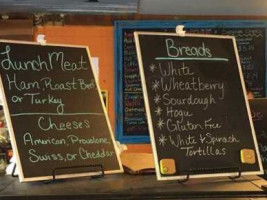 Lunch Meat
Ham, Roast Beef
or Turkey
Cheeses
American, Provolone,
Swiss, or Cheddar
Breads
* White
* Wheatberry
* Sourdough
* Hoagu
* Gluten Free
* White & Spinach
Tortillas